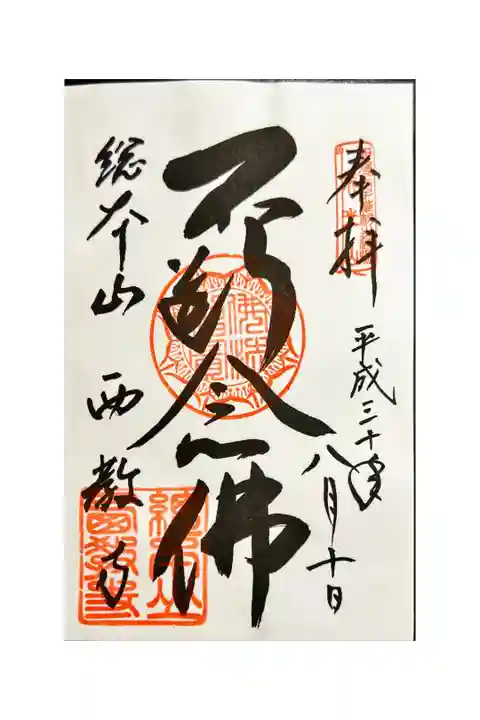 奉拝
平成三十年
八月十日
不断念佛
総本山 西教寺